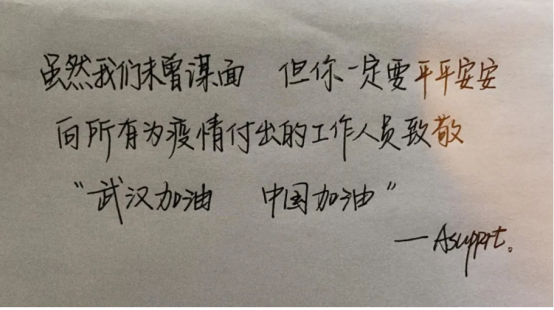 虽然我们未曾谋面 但你一定要平平安安
向所有为疫情付出的工作人员致敬
“武汉加油 中国加油”